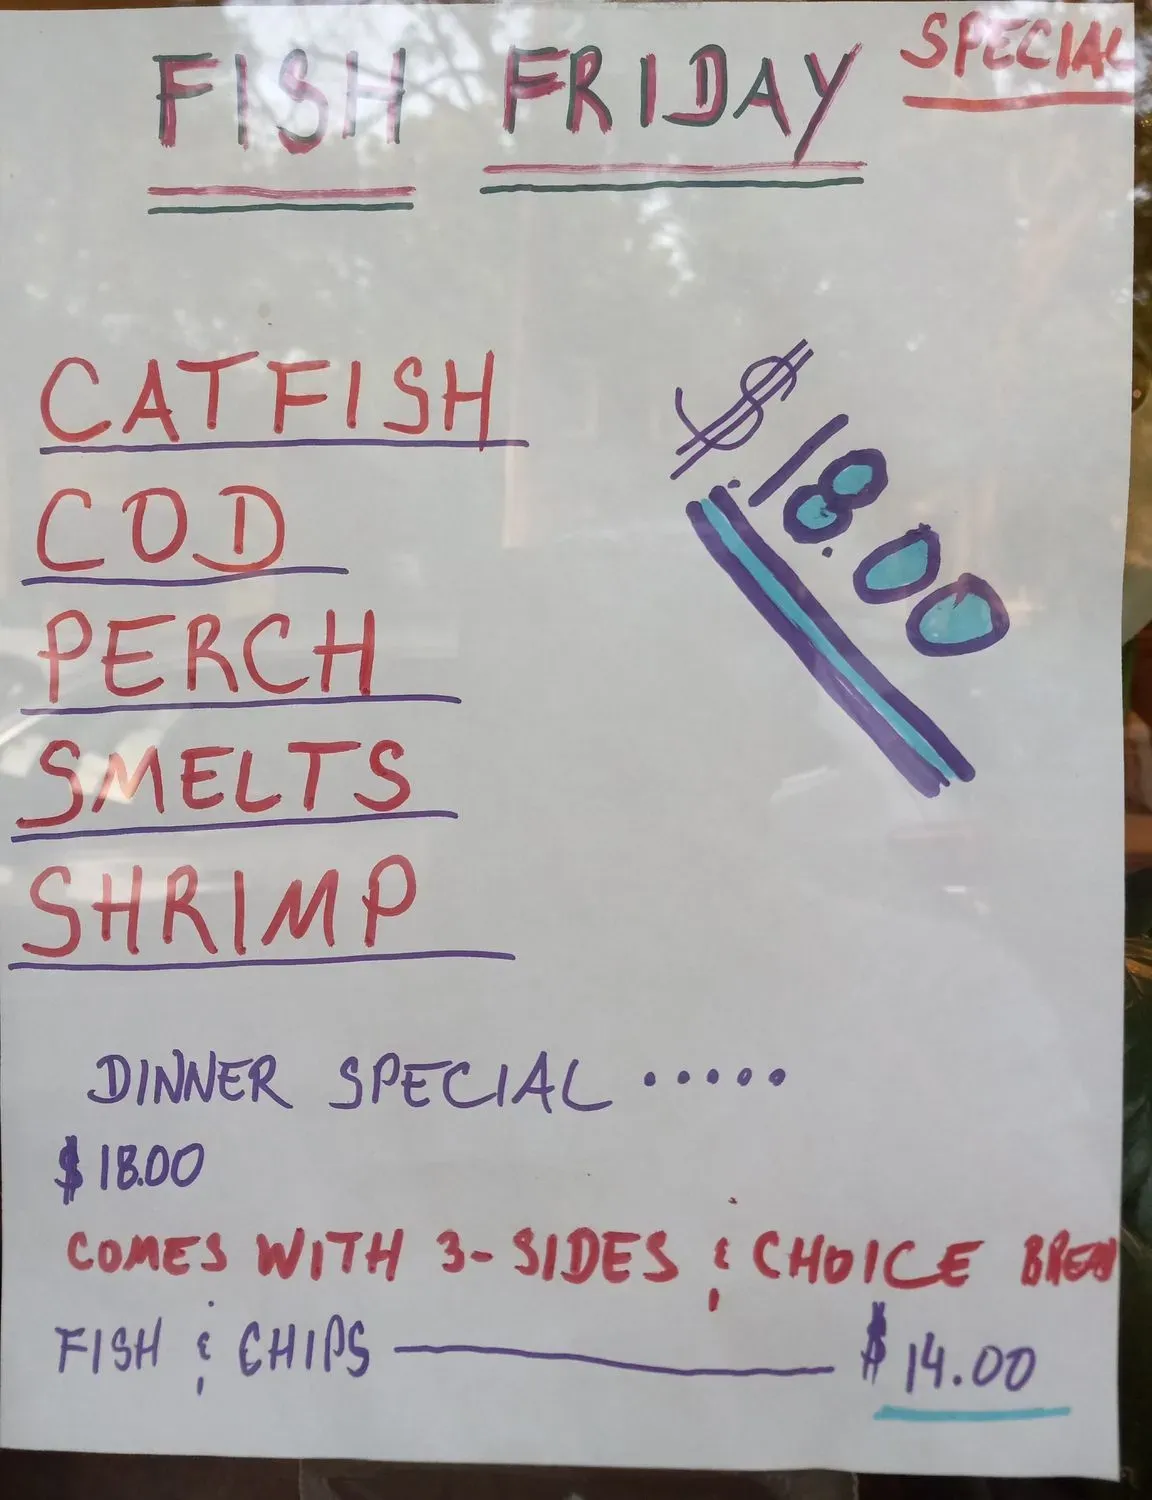 FISH FRIDAY SPECIAL
CATFISH
$18.00
COD
PERCH
SMELTS
SHRIMP
DINNER SPECIAL .....
$18.00
COMES WITH 3-SIDES & CHOICE BREAD
FISH & CHIPS — $14.00